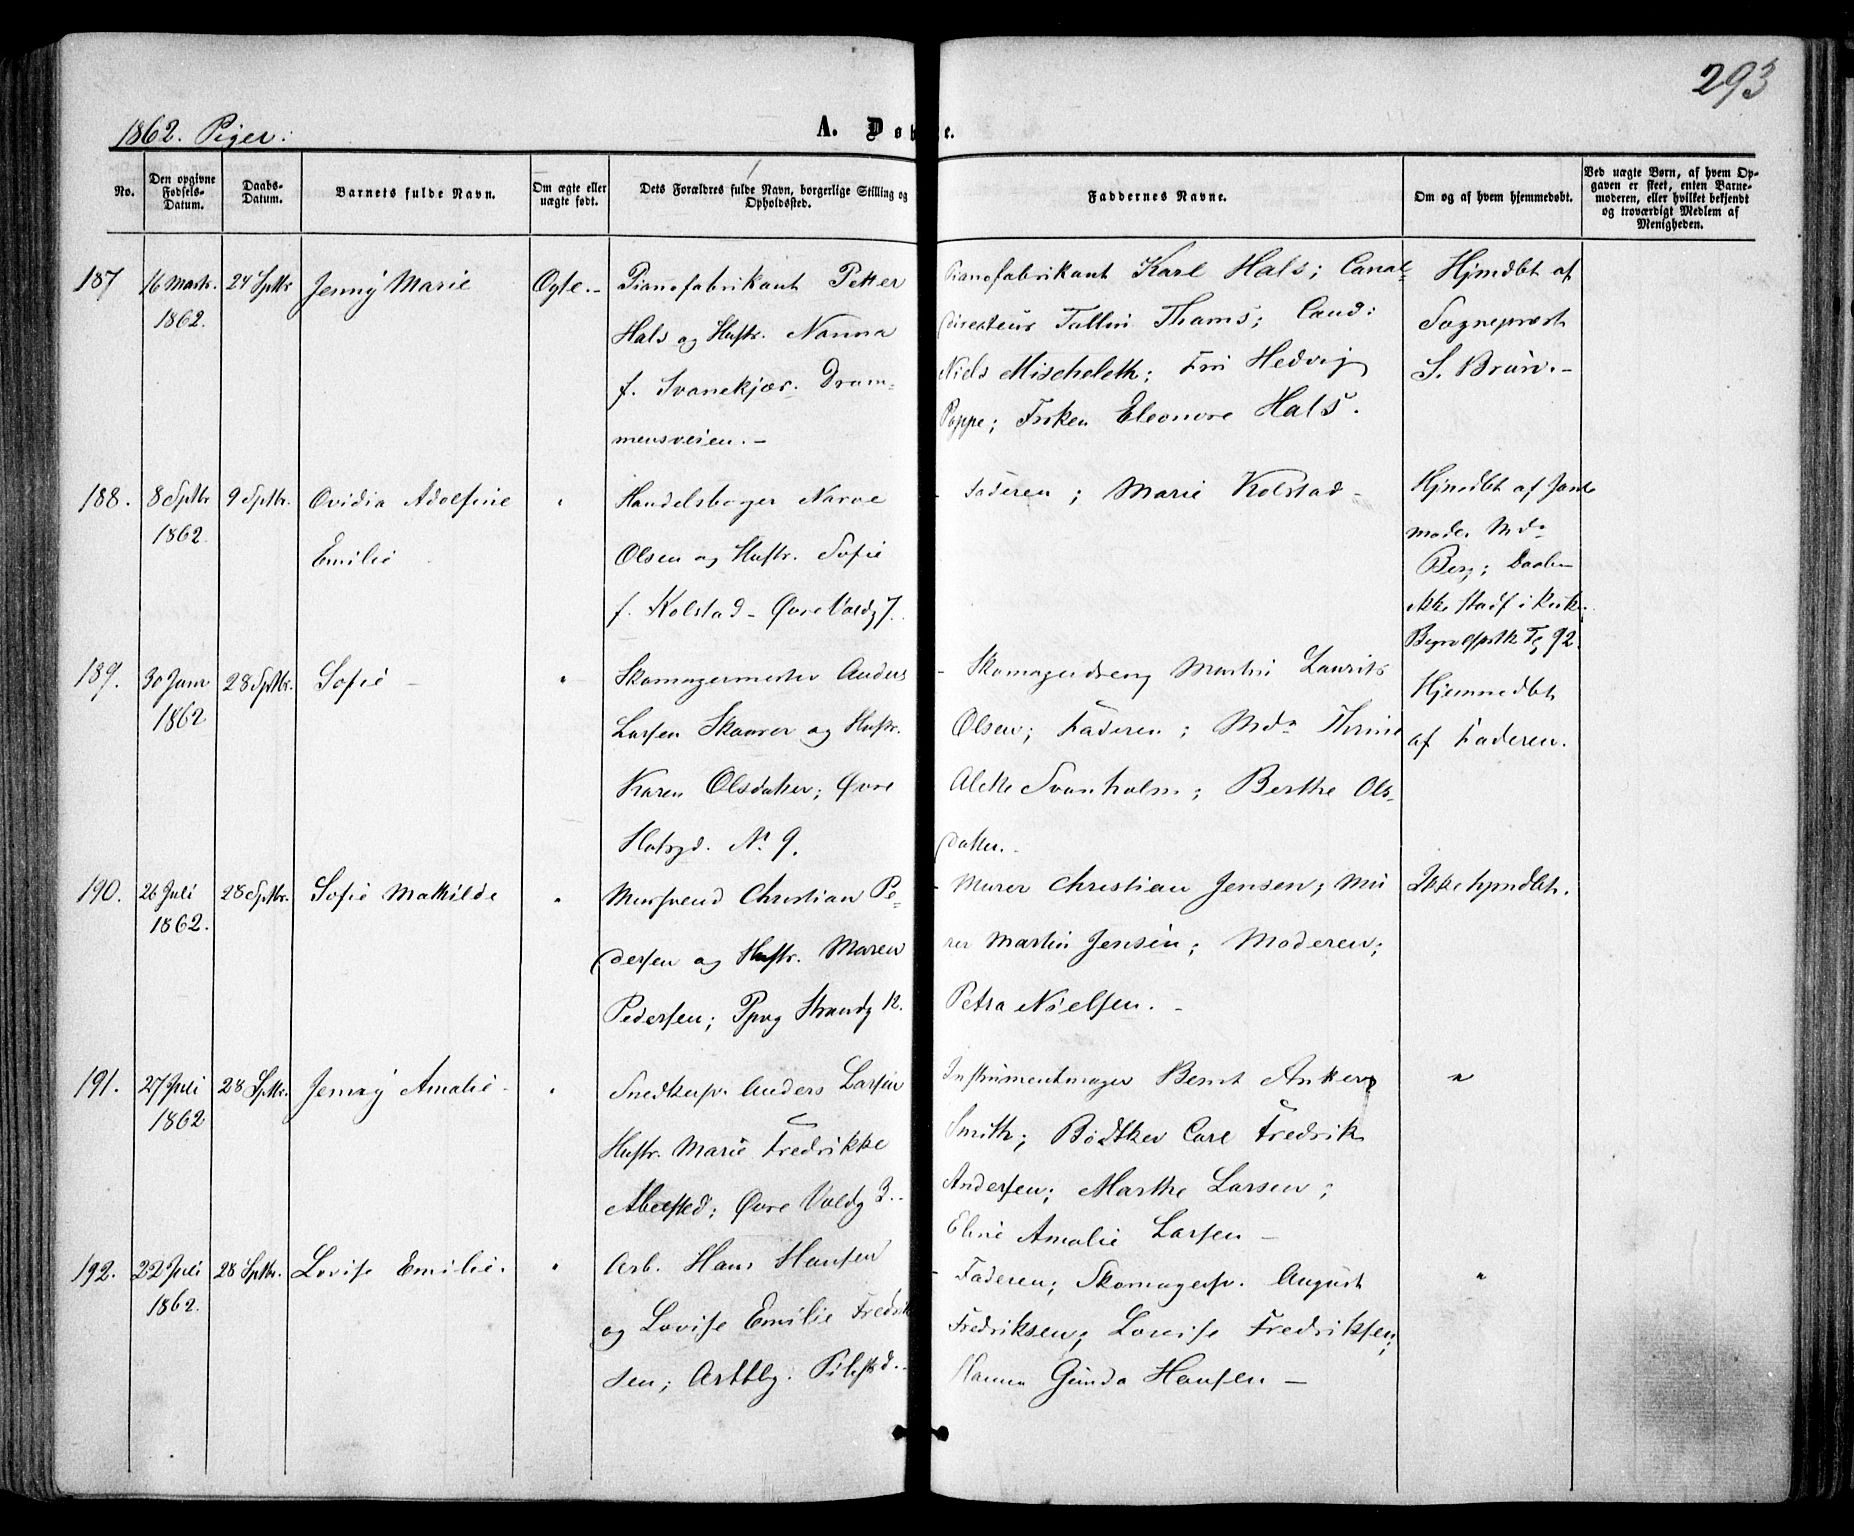 293
1862. Piger.
A. Døbte.
No.
Den opgivne Fødsels-Datum.
Daabs-Datum.
Barnets fulde Navn.
Om ægte eller uægte født.
Dets Forældres fulde Navn, borgerlige Stilling og Opholdssted.
Faddernes Navne.
Om og af hvem hjemmedøbt.
Ved uægte Børn, af hvem Opgaven er skeet, enten Barnemoderen, eller hvilket bekjendt og troværdigt Medlem af Menigheden.
187
16 Marts
1862.
24 Sptbr
Jenny Marie
Ogte.-
Pianofabrikant Petter
Hals og Hustr. Nanna
f. Svanekjær. Dram-
mensveien.-
Pianofabrikant Karl Hals; Canal-
directeur Thams; Cand:
Niels Mischeleth; Hedvig
Poppe; Frøken Eleonore Hals.
Hjmdbt af
Sognepræst
S. Brun.-
188.
8 Sptbr
1862
9 Sptbr.
Ovidia Adolfine
Emilie
"
Handelsborger Narve
Olsen og Hustr. Sofie
f. Kolstad - Øvre Voldg 7.
- Faderen; Marie Kolstad-
Hjmdbt af Jord-
mode. Mda
Berg; Daaben
ikke stadf i Kirk.
189.
30 Janr
1862
28 Sptbr.
Sofie -
"
Skomagermester Anders
Larsen Skaurer og Hustr.
Karen Olsdatter; Øvre
No 9.
- Skomagerdreng Martin Laurits
Olsen; Faderen; Mda Thrine
Alette Svanholm; Berthe Ols-
datter.-
Hjemmedbt
af Faderen.
190.
26 Juli
1862.
28 Sptbr.
Sofie Mathilde
"
Mursvend Christian Pe-
dersen og Hustr. Maren
Pedersen; Ppvg Strandg 12.
- Murer Christian Jensen; Mu
rer Martin Jensen; Moderen;
Petra Nielsen.-
Ikke hjmdbt.
191.
27 Juli
1862
28 Sptbr.
Jenny Amalie-
"
Snedkersv. Anders Larsen
Hustr. Marie Fredrikke
Abelsted; Øvre Voldg 3.-
Instrumentmager Bernt Anker
Smith; Bødtker Carl Fredrik
Andersen; Marthe Larsen;
Eline Amalie Larsen-
"
192.
22 Juli
1862.
28 Sptbr.
Lovise Emilie.
"
Arb. Hans Hansen
og Lovise Emilie Fredrik
sen;
- Faderen; Skomagersv. August
Fredriksen; Lovise Fredriksen;
Hanna Gunda Hansen-
"